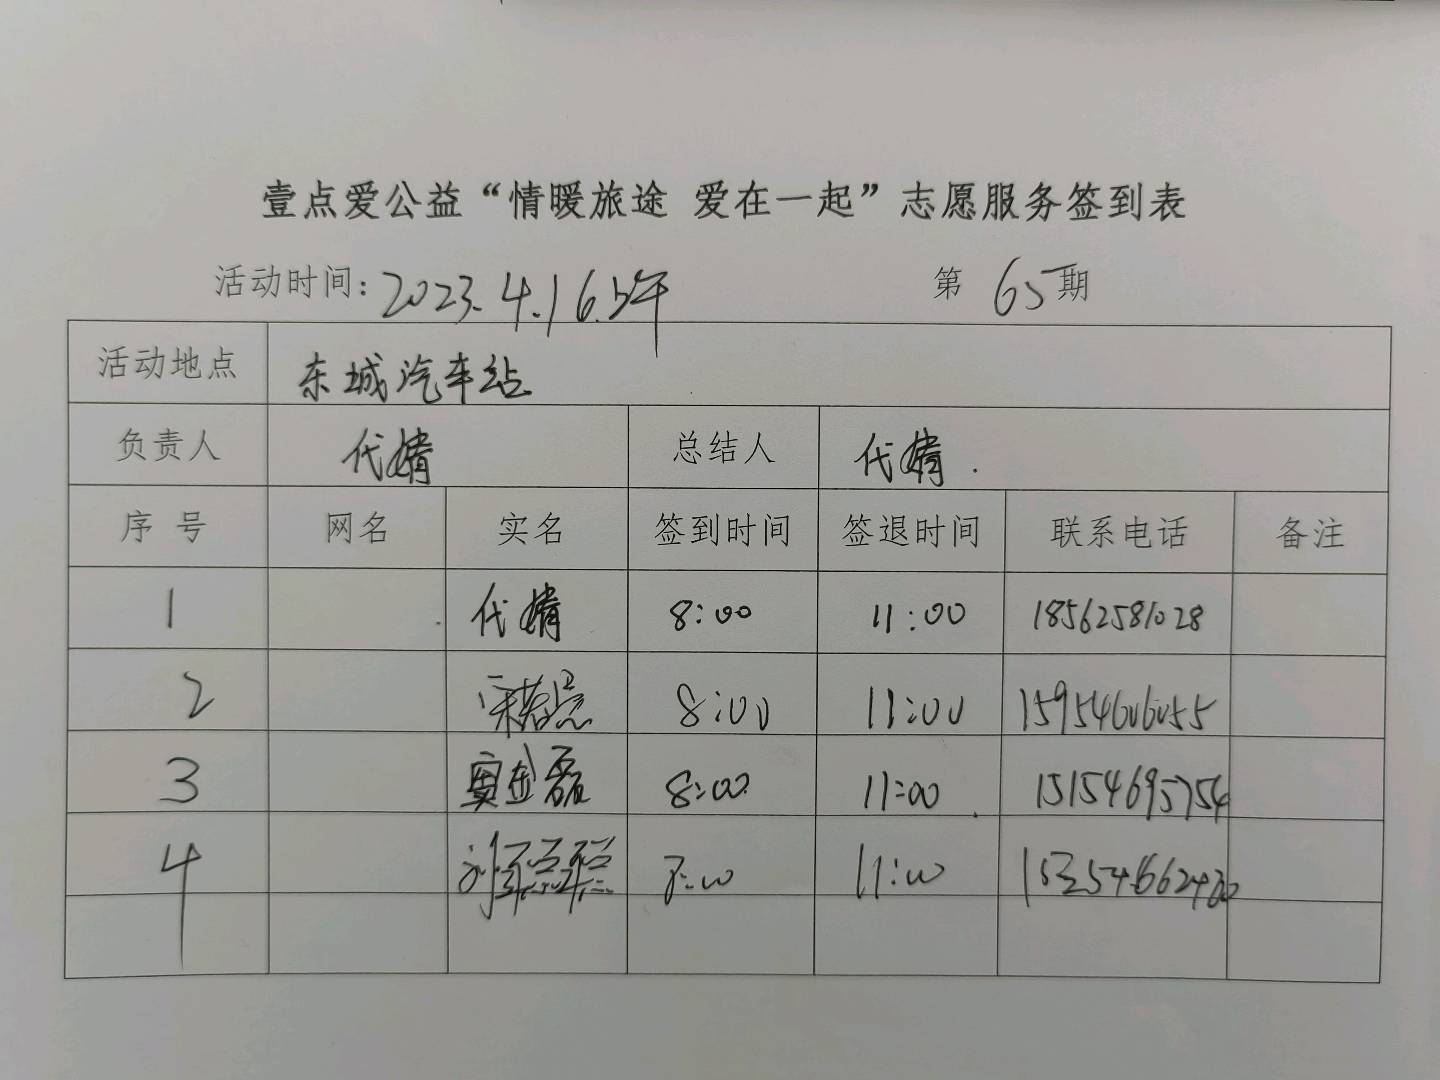 壹点爱公益“情暖旅途 爱在一起”志愿服务签到表
活动时间：2023.4.16.上午 第 65 期
活动地点 东城汽车站
负责人 代婧 总结人 代婧.
序 号 网名 实名 签到时间 签退时间 联系电话 备注
1 代婧 8:00 11:00 18562581028
2 8:00 11:00 15954606055
3 窦金磊 8:00 11:00 15154695754
4 8:00 11:00